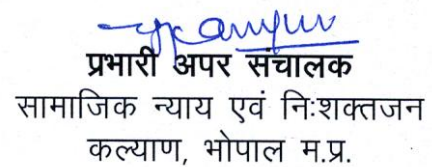 प्रभारी अपर संचालक
सामाजिक न्याय एवं निःशक्तजन
कल्याण, भोपाल म.प्र.